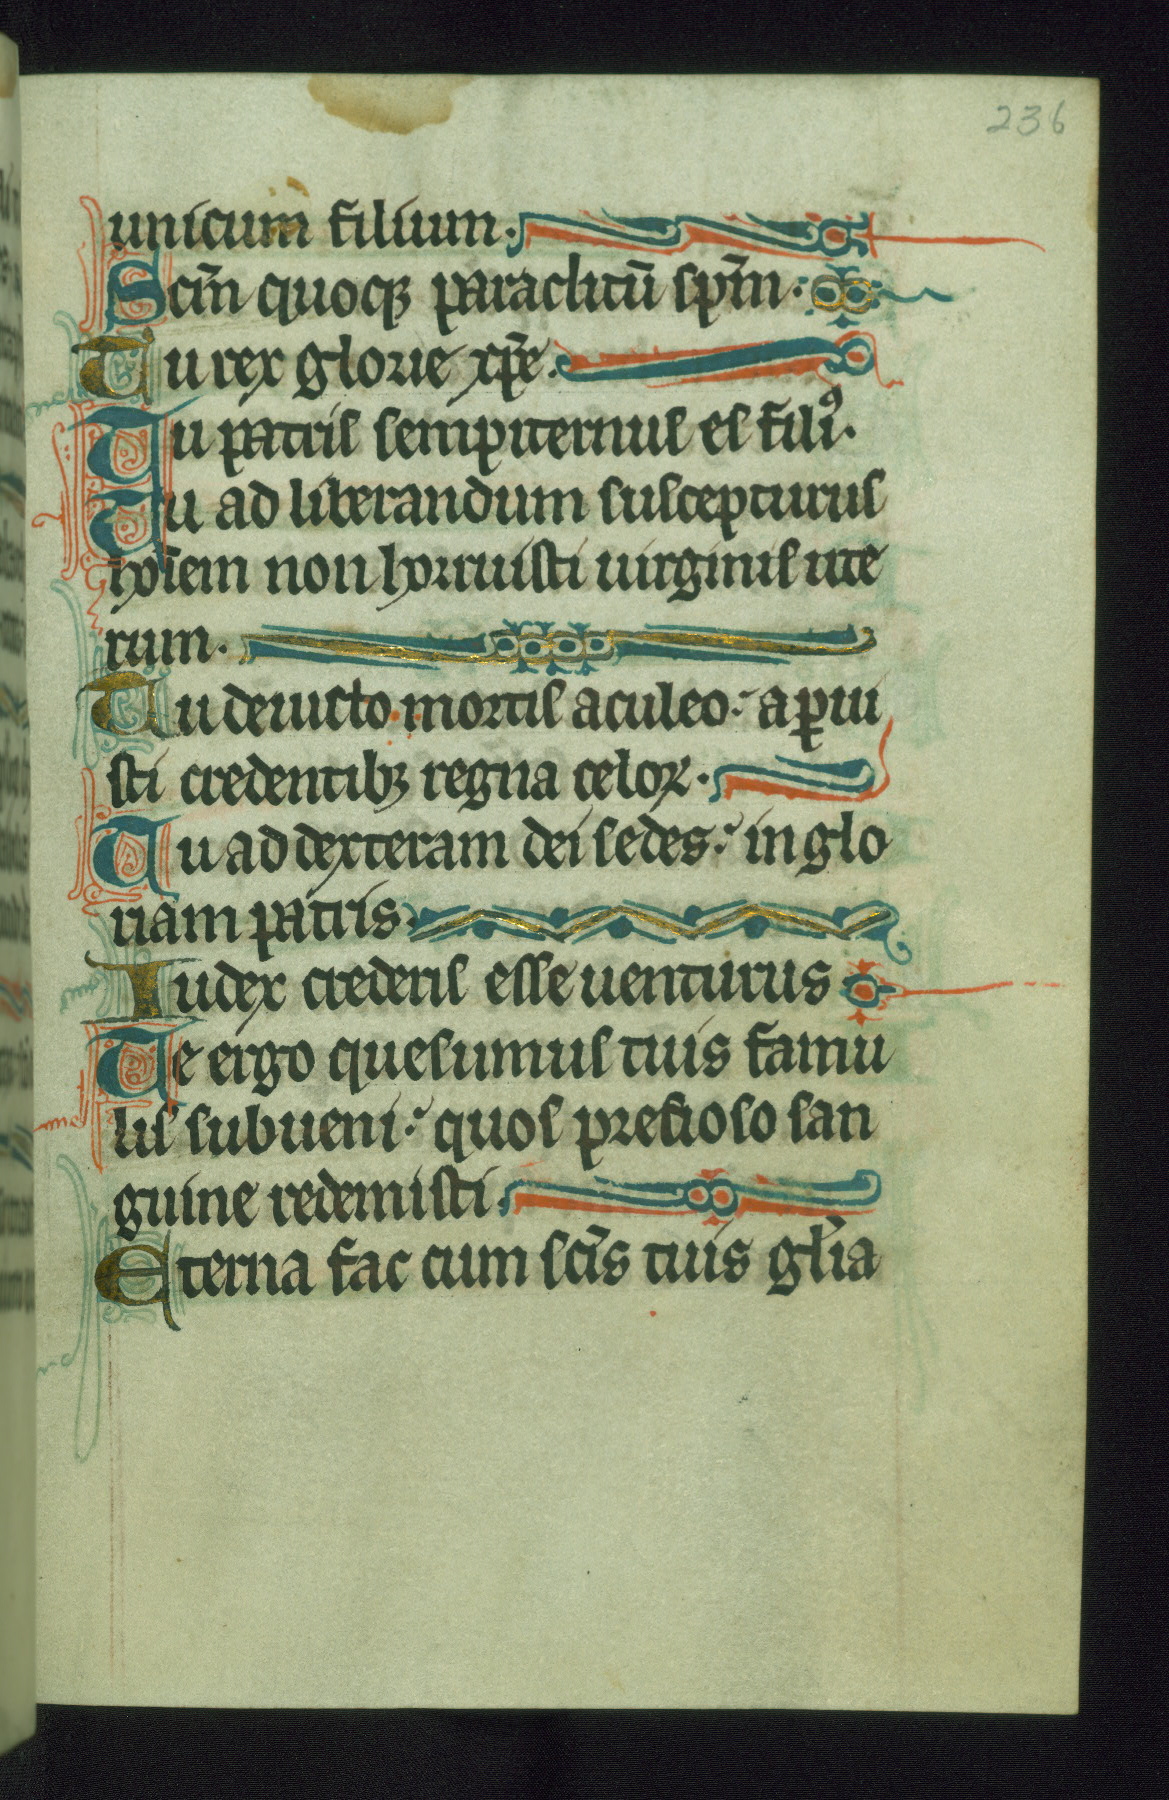 236
unicum filium.
Scm̄ quoqꝫ paraclitū sp̄m.
Tu rex glorie xp̄e.
Tu patris sempiternus es filiꝰ.
Tu ad liberandum suscepturus
hoīem non horruisti uirginis ute
rum.
Tu deuicto mortis aculeo: aperui
sti credentibꝫ regna celoꝝ.
Tu ad dexteram dei sedes: in glo
riam patris.
Iudex crederis esse uenturus
Te ergo quesumus tuis famu
lis subueni: quos precioso san
guine redemisti.
Eterna fac cum scīs tuis gl̄ia